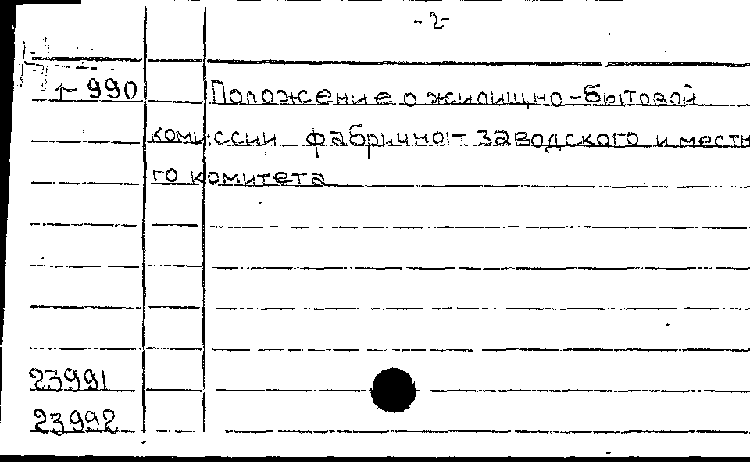 -2-
990 Положение о жилищно-бытовой
комиссии фабрично-заводского и местн
го комитета
23991
23992